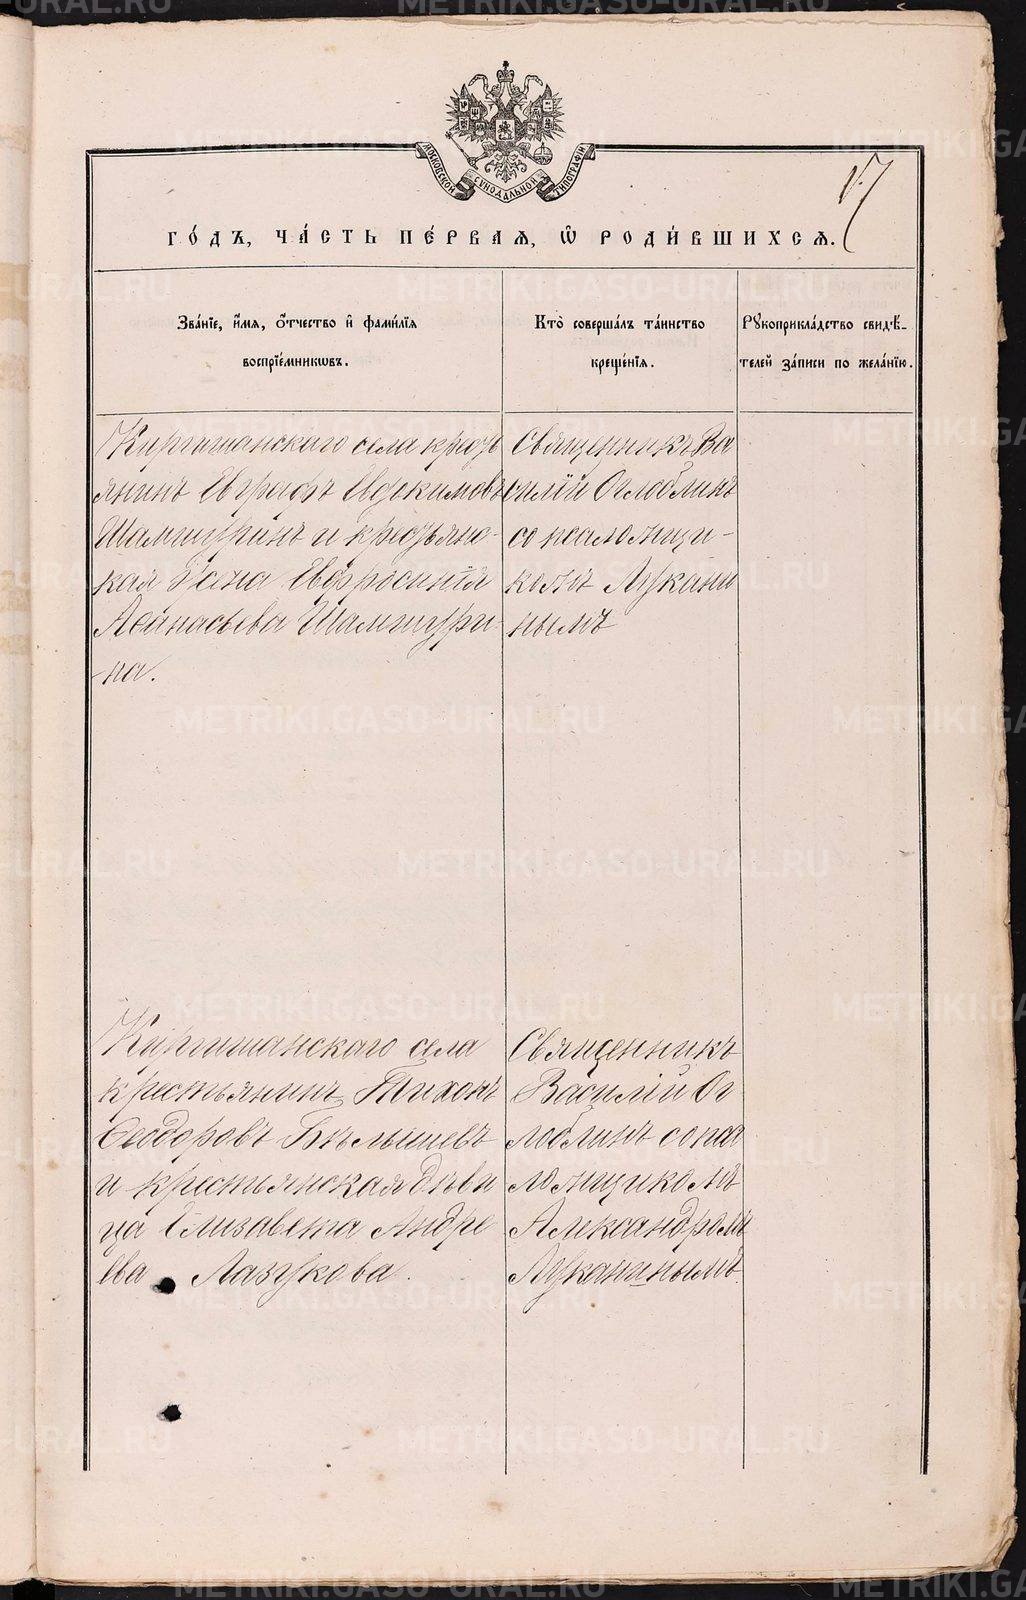 МОСКОВСКОЙ СУНОДАЛЬНОЙ ТИПОГРАФІИ
ГО́ДЪ, ЧА́СТЬ ПЕ́РВАѦ, Ѡ҆ РОДИ́ВШИХСѦ.
Зва́нїе, и҆́мѧ, ѻ҆́тчество и҆ фами́лїѧ
воспрїе́мникѡвъ.
Кто̀ соверша́лъ та́инство
креще́нїѧ.
Рꙋкоприкла́дство свидѣ́-
телей за́писи по жела́нїю.
Киргишанскаго села кресть
янинъ Евграфъ Евдокимовъ
Шамшуринъ и крестьянс-
кая жена Евфросинія
Аѳанасьева Шамшури-
на.
Священникъ Ва
силій Оглоблинъ
со псаломщи-
комъ Лукани
нымъ
Киргишанскаго села
крестьянинъ Тихонъ
Ѳеодоровъ Бѣлышевъ
и крестьянская дѣви
ца Елизавета Андре
ева Лазукова.
Священникъ
Василій Ог
лоблинъ со пса
ломщикомъ
Александромъ
Луканинымъ.
METRIKI.GASO-URAL.RU